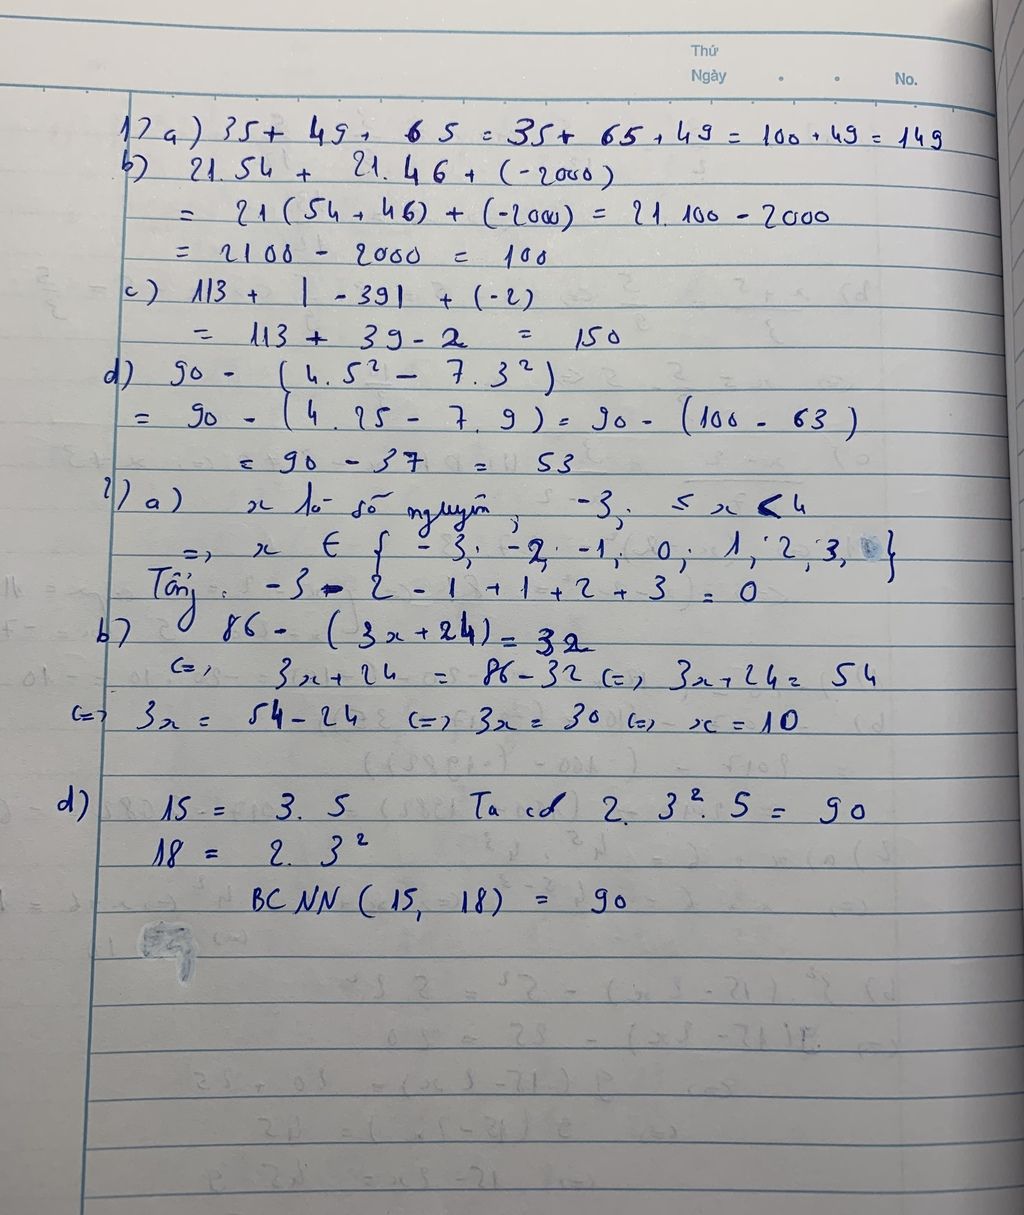 Thứ
Ngày . . No.
1) a) 35 + 49 + 65 = 35 + 65 + 49 = 100 + 49 = 149
b) 21.54 + 21.46 + (-2000)
= 21(54 + 46) + (-2000) = 21.100 - 2000
= 2100 - 2000 = 100
c) 113 + |-39| + (-2)
= 113 + 39 - 2 = 150
d) 90 - (4.5² - 7.3²)
= 90 - (4.25 - 7.9) = 90 - (100 - 63)
= 90 - 37 = 53
2) a) x là số nguyên, -3; ≤ x < 4
=> x ∈ { -3; -2; -1; 0; 1; 2; 3; }
Tổng: -3 - 2 - 1 + 1 + 2 + 3 = 0
b) 86 - (3x + 24) = 32
<=> 3x + 24 = 86 - 32 <=> 3x + 24 = 54
<=> 3x = 54 - 24 <=> 3x = 30 <=> x = 10
d) 15 = 3.5 Ta có 2.3².5 = 90
18 = 2.3²
BCNN (15, 18) = 90